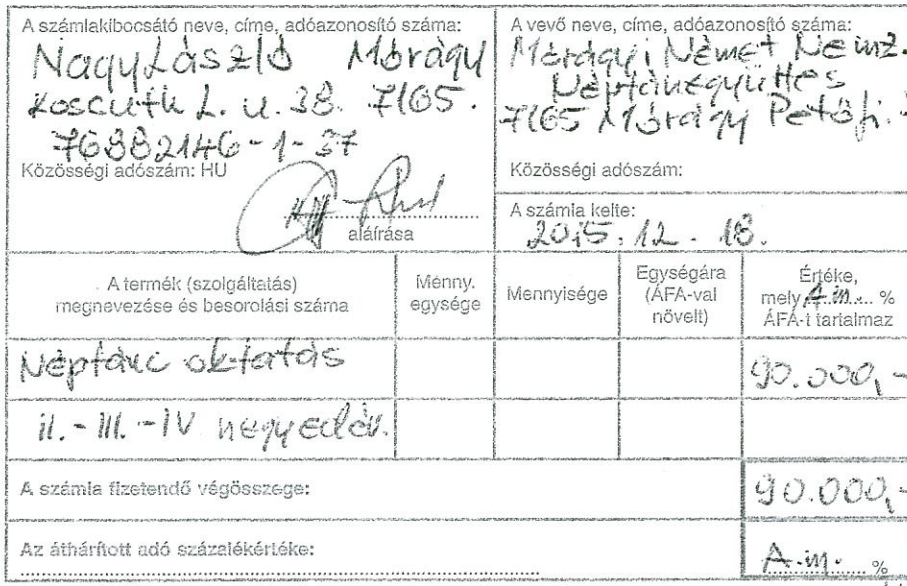 A számlakibocsátó neve, címe, adóazonosító száma:
Nagy László Mórágy
Koscuth L. u. 38. 7165.
76882146-1-37
Közösségi adószám: HU
aláírása
A vevő neve, címe, adóazonosító száma:
Mórágyi Német Nemz.
Néptáncegyüttes
7165 Mórágy Petőfi.
Közösségi adószám:
A számla kelte:
2015. 12. 18.
A termék (szolgáltatás)
megnevezése és besorolási száma
Menny.
egysége
Mennyisége
Egységára
(ÁFA-val
növelt)
Értéke,
mely A.m. %
ÁFA-t tartalmaz
Néptánc oktatás
90.000,-
II. - III. - IV negyedév.
A számla fizetendő végösszege:
90.000,-
Az áthárított adó százalékértéke:
A.m. %